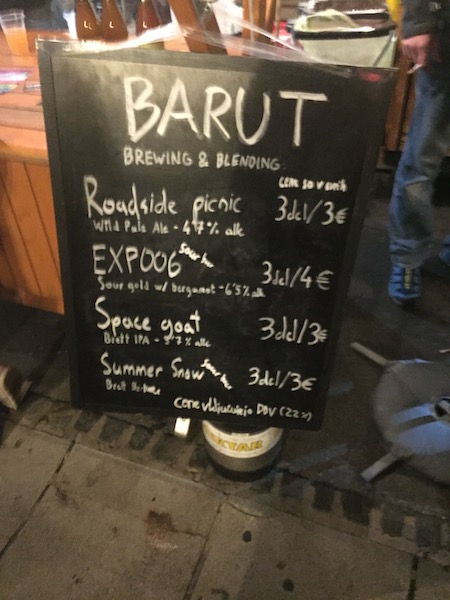 BARUT
BREWING & BLENDING
cene so v evrih
Roadside picnic 3dcl/3€
Wild Pale Ale - 4'7% alk
EXP006 sour beer 3dcl/4€
Sour gold w/ bergamot - 6'5% alk
Space goat 3dcl/3€
Brett IPA - 5'7% alk
Summer Snow 3dcl/3€
Brett
cene vključujejo DDV (22%)